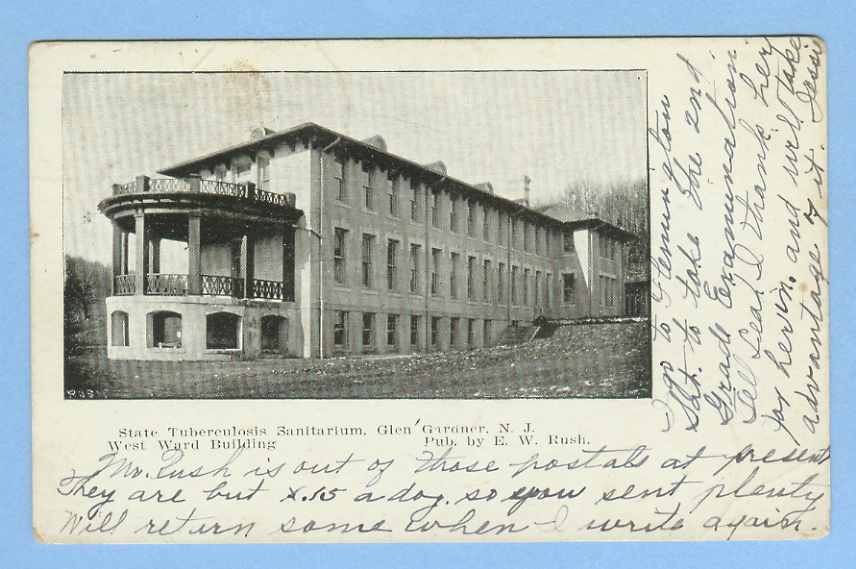 State Tuberculosis Sanitarium, Glen Gardner, N. J.
West Ward Building
Pub. by E. W. Rush.
Mr. Rush is out of those postals at present
They are but .15 a doz. so you sent plenty
Will return some when I write again.
I go to Flemington
Sat. to take the 2nd
Grade Examination.
Tell Leal I thank her
for her in. and will take
advantage of it. Jessie